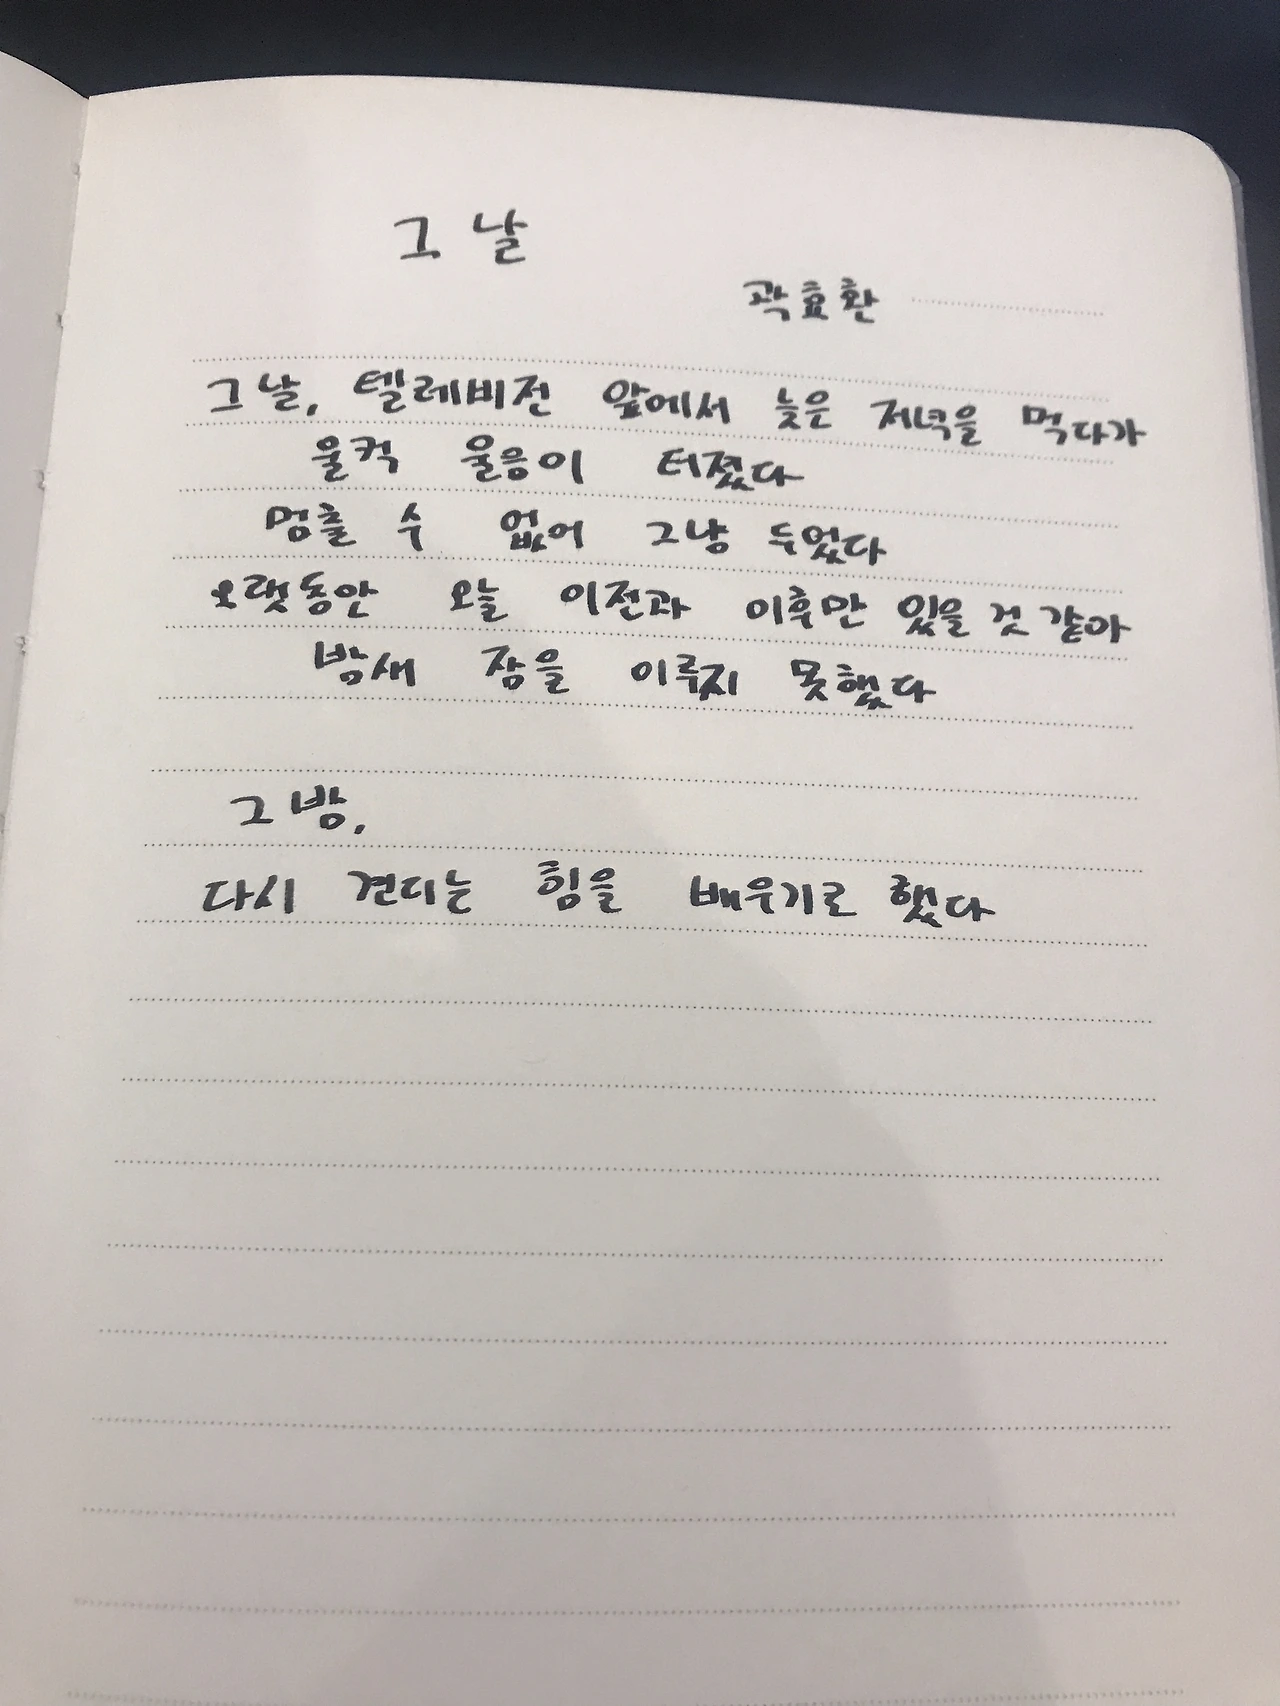 그 날
곽효환
그날, 텔레비전 앞에서 늦은 저녁을 먹다가
울컥 울음이 터졌다
멈출 수 없어 그냥 두었다
오랫동안 오늘 이전과 이후만 있을 것 같아
밤새 잠을 이루지 못했다
그 밤,
다시 견디는 힘을 배우기로 했다